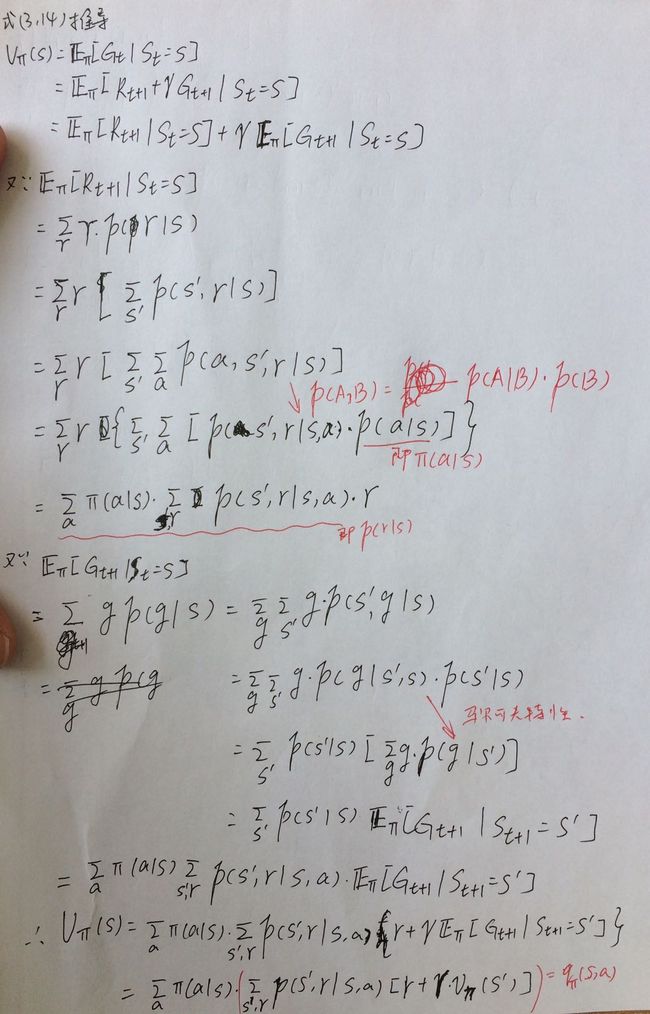 式(3.14)推导
Vπ(s) = 𝔼π[Gt | St=s]
= 𝔼π[Rt+1 + γGt+1 | St=s]
= 𝔼π[Rt+1 | St=s] + γ𝔼π[Gt+1 | St=s]
又∵ 𝔼π[Rt+1 | St=s]
= Σr r·p(r|s)
= Σr r [Σs' p(s', r|s)]
= Σr r [Σs' Σa p(a, s', r|s)]
p(A,B) = p(A|B)·p(B)
= Σr r {Σs' Σa [p(s', r|s,a)·p(a|s)]}
即 π(a|s)
= Σa π(a|s)·Σs',r p(s', r|s,a)·r
即 p(r|s)
又∵ 𝔼π[Gt+1 | St=s]
= Σg g p(g|s) = Σg Σs' g·p(s', g|s)
= Σg g p(g
= Σg Σs' g·p(g|s',s)·p(s'|s)
马尔可夫特性.
= Σs' p(s'|s) [Σg g·p(g|s')]
= Σs' p(s'|s) 𝔼π[Gt+1 | St+1=s']
= Σa π(a|s) Σs',r p(s', r|s,a)·𝔼π[Gt+1 | St+1=s']
∴ Vπ(s) = Σa π(a|s)·Σs',r p(s', r|s,a) {r + γ𝔼π[Gt+1 | St+1=s']}
= Σa π(a|s)·(Σs',r p(s', r|s,a) [r + γ·Vπ(s')]) = qπ(s,a)